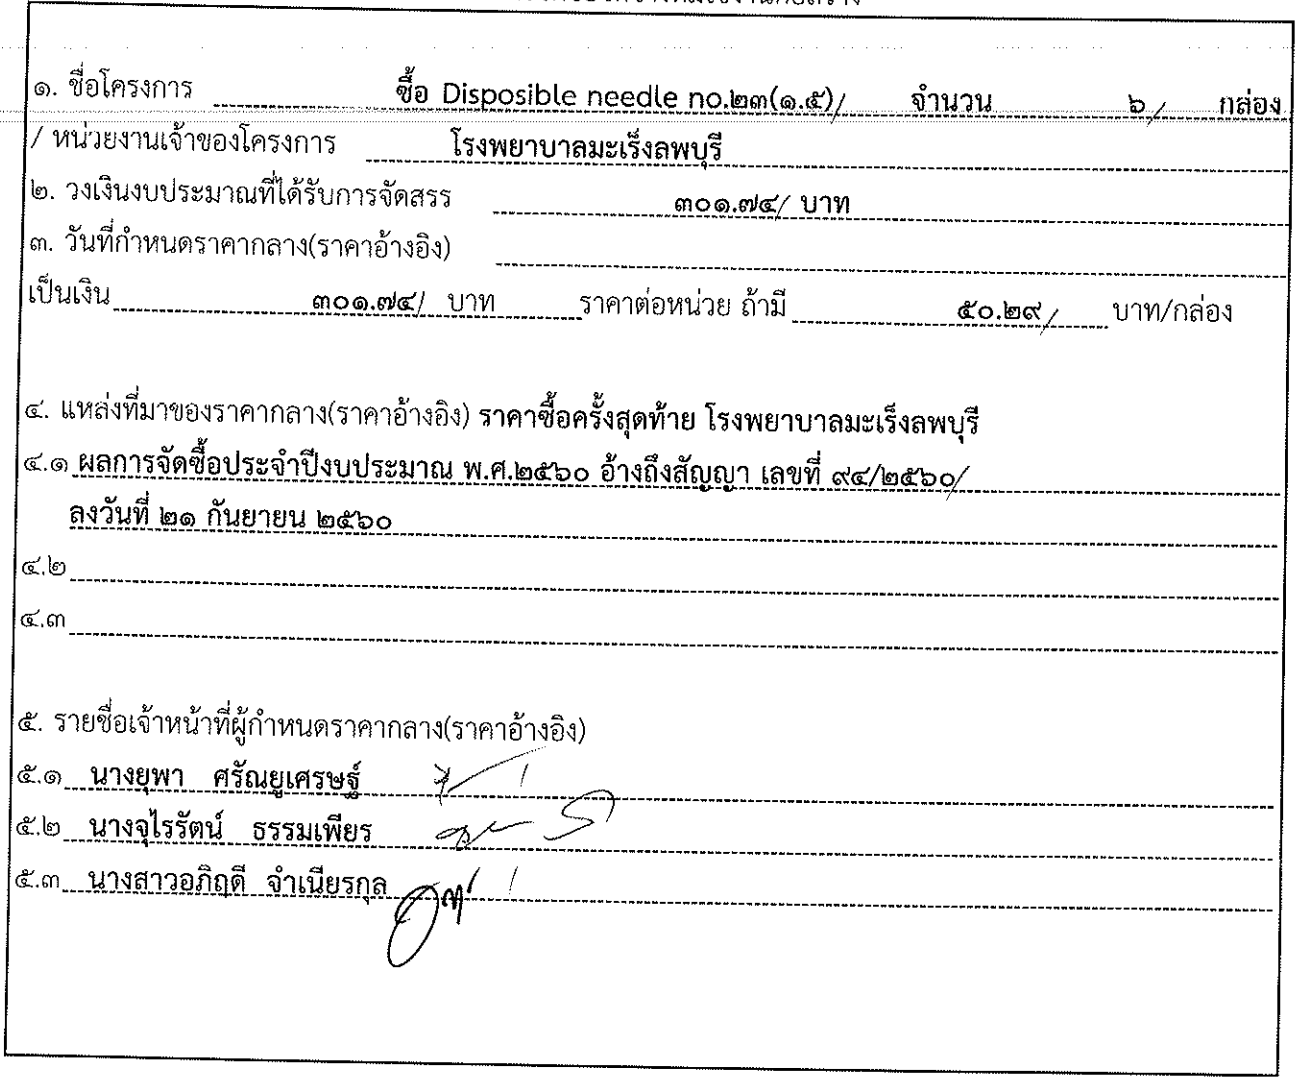 ๑. ชื่อโครงการ ซื้อ Disposible needle no.๒๓(๑.๕)/ จำนวน ๖/ กล่อง
/ หน่วยงานเจ้าของโครงการ โรงพยาบาลมะเร็งลพบุรี
๒. วงเงินงบประมาณที่ได้รับการจัดสรร ๓๐๑.๗๔/ บาท
๓. วันที่กำหนดราคากลาง(ราคาอ้างอิง)
เป็นเงิน ๓๐๑.๗๔/ บาท ราคาต่อหน่วย ถ้ามี ๕๐.๒๙/ บาท/กล่อง
๔. แหล่งที่มาของราคากลาง(ราคาอ้างอิง) ราคาซื้อครั้งสุดท้าย โรงพยาบาลมะเร็งลพบุรี
๔.๑ ผลการจัดซื้อประจำปีงบประมาณ พ.ศ.๒๕๖๐ อ้างถึงสัญญา เลขที่ ๙๔/๒๕๖๐/
ลงวันที่ ๒๑ กันยายน ๒๕๖๐
๔.๒
๔.๓
๕. รายชื่อเจ้าหน้าที่ผู้กำหนดราคากลาง(ราคาอ้างอิง)
๕.๑ นางยุพา ศรัณยูเศรษฐ์
๕.๒ นางจุไรรัตน์ ธรรมเพียร
๕.๓ นางสาวอภิฤดี จำเนียรกุล